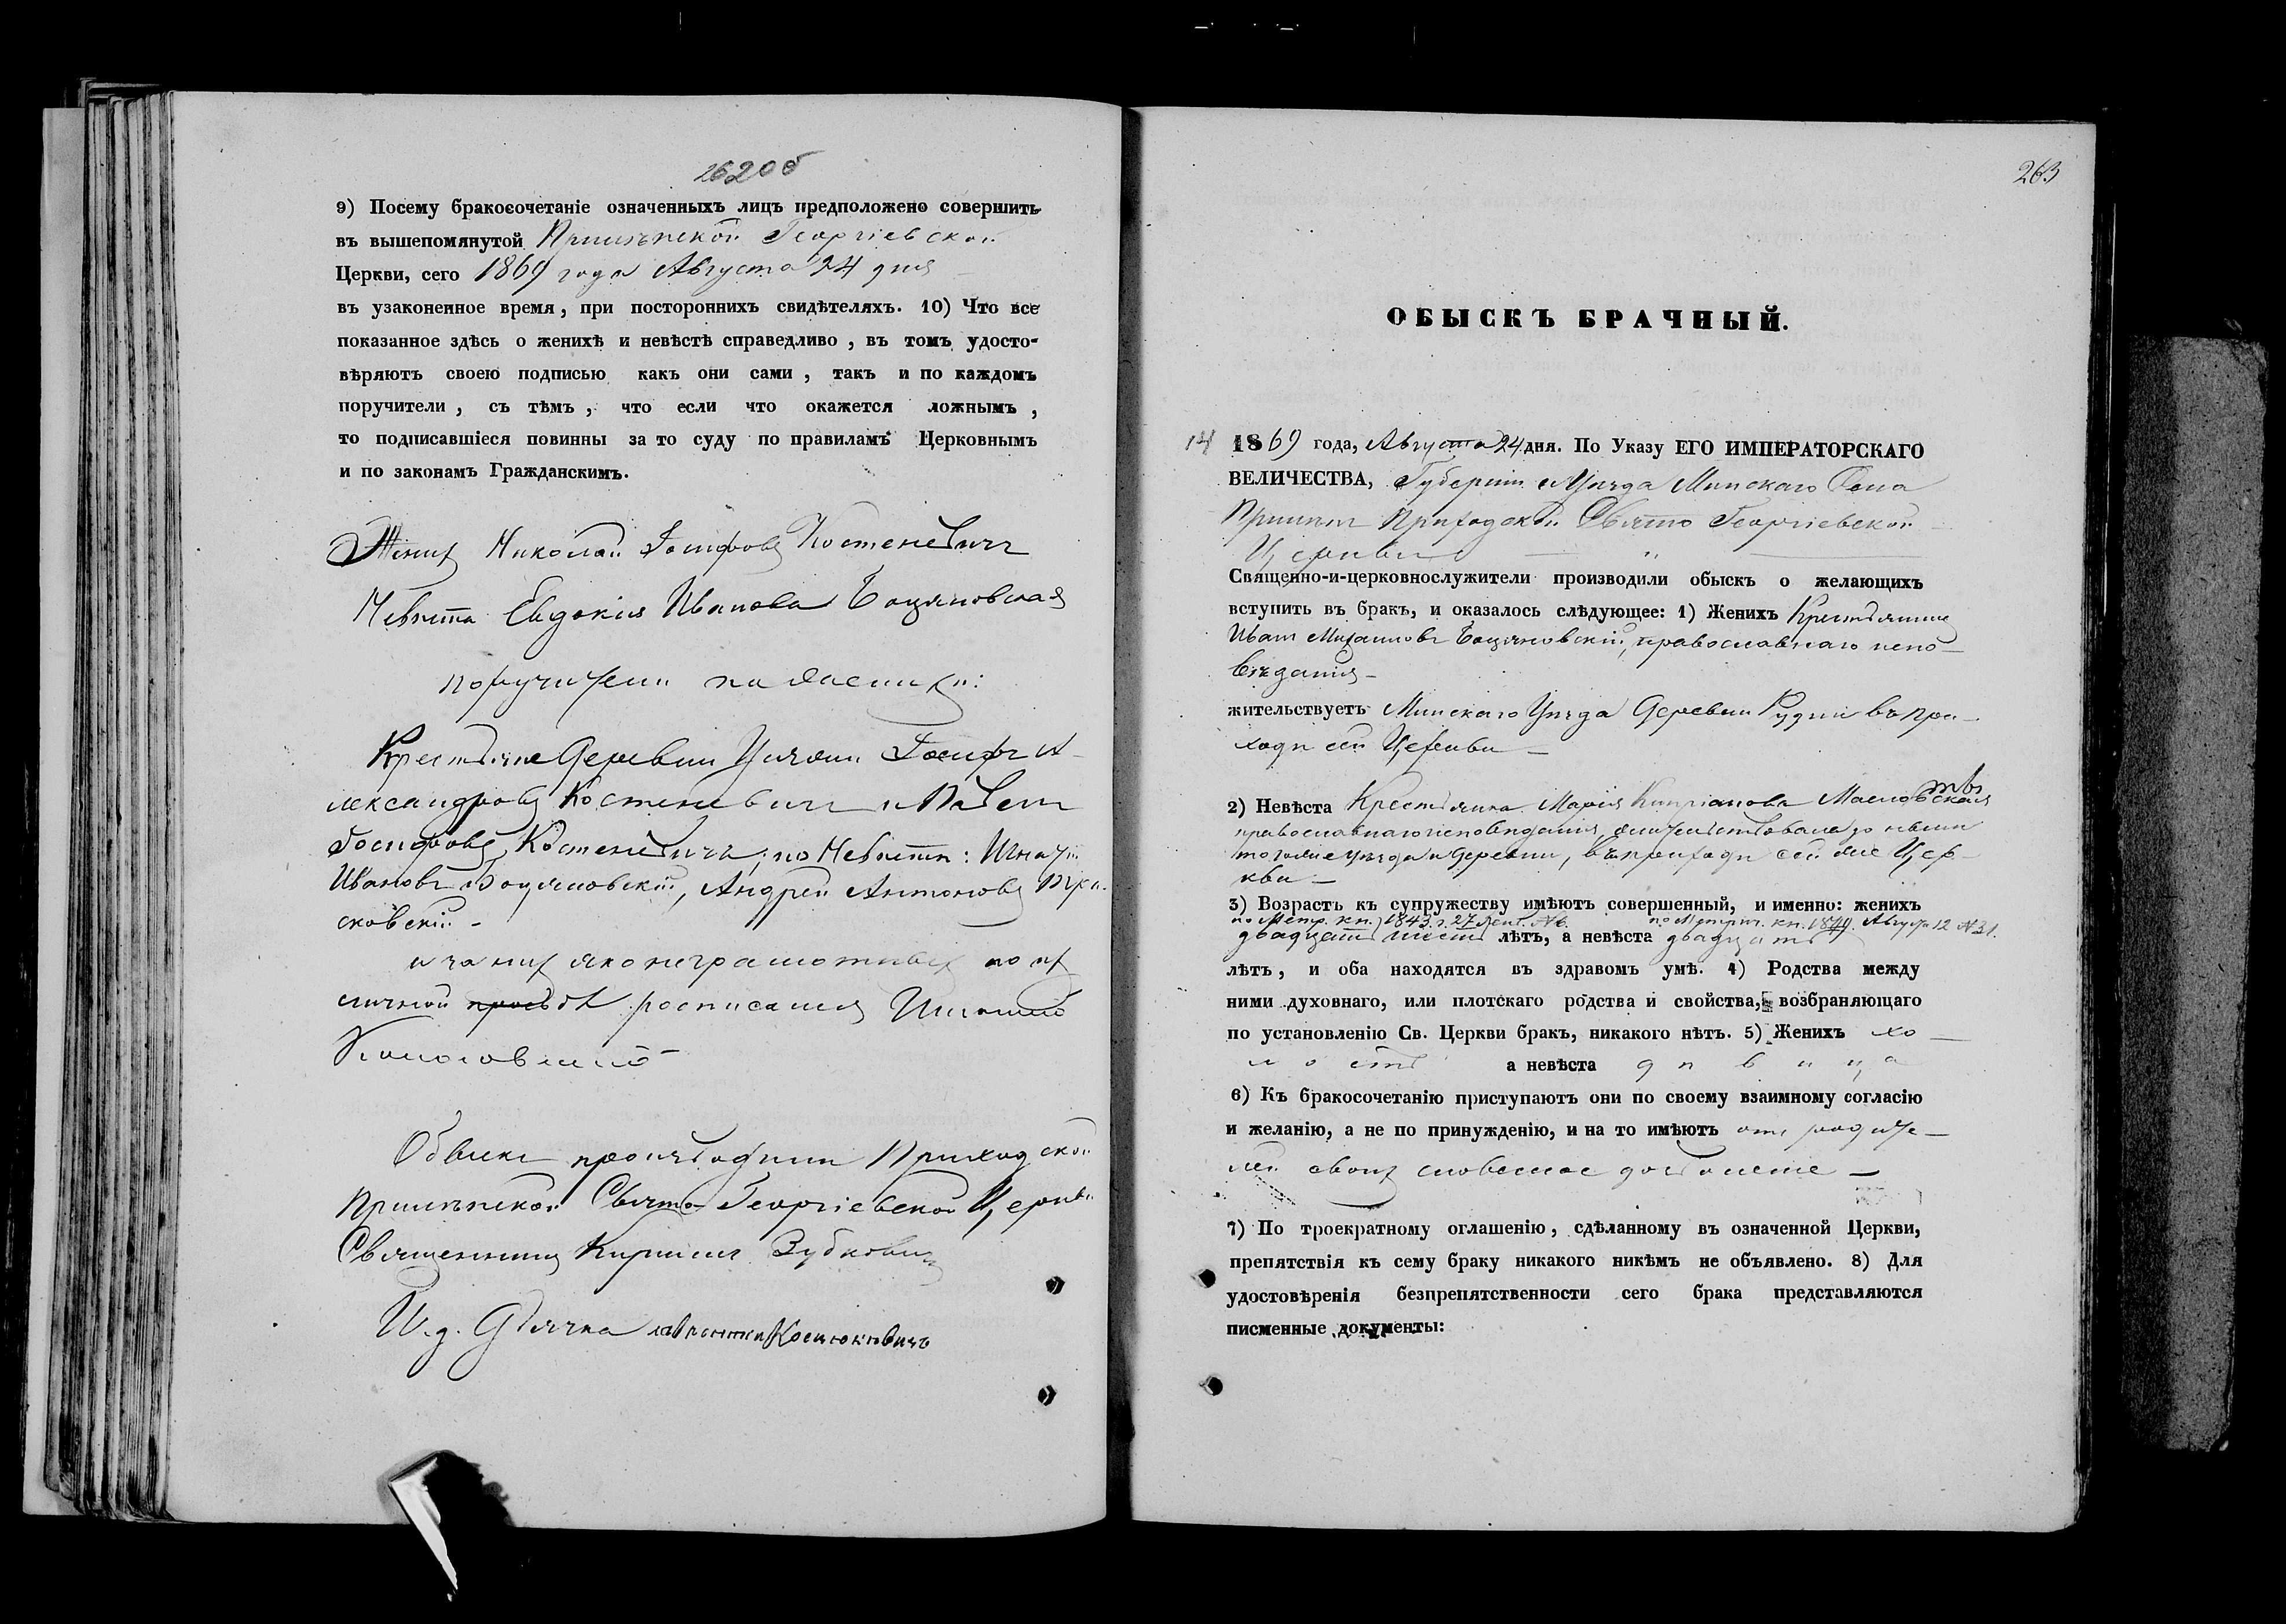 262 об
9) Посему бракосочетаніе означенныхъ лицъ предположено совершить
въ вышепомянутой Прилѣпской Георгіевской
Церкви, сего 1869 года Августа 24 дня
въ узаконенное время, при постороннихъ свидѣтеляхъ. 10) Что все
показанное здѣсь о женихѣ и невѣстѣ справедливо, въ томъ удосто-
вѣряютъ своею подписью какъ они сами, такъ и по каждомъ
поручители, съ тѣмъ, что если что окажется ложнымъ,
то подписавшіеся повинны за то суду по правиламъ Церковнымъ
и по законамъ Гражданскимъ.
Женихъ Николай Іосифовъ Костеневичъ
Невѣста Евдокія Иванова Боцяновская
поручители по женихѣ:
Крестьяне Деревни Уляжи Іосифъ А-
лександровъ Костеневичъ и Павелъ
Іосифовъ Костеневичъ; по Невѣстѣ: Игнатій
Ивановъ Боцяновскій, Андрей Антоновъ
сковскій -
а за нихъ яко неграмотныхъ по их
личной просьбѣ росписался
Обыскъ производили Приходской
Прилѣпской Свято-Георгіевской Церкви
Священникъ Кириллъ Зубковичъ
И. д. Дьячка Костюкевичъ
263
ОБЫСКЪ БРАЧНЫЙ.
14 1869 года, Августа 24 дня. По Указу ЕГО ИМПЕРАТОРСКАГО
ВЕЛИЧЕСТВА, Губерніи и Уѣзда Минскаго Села
Прилѣпъ Приходской Свято Георгіевской
Церкви
Священно-и-церковнослужители производили обыскъ о желающихъ
вступить въ бракъ, и оказалось слѣдующее: 1) Женихъ Крестьянинъ
Иванъ Михаиловъ Боцяновскій, православнаго испо-
вѣданія -
жительствуетъ Минскаго Уѣзда Деревни Рудни въ при-
ходѣ сей Церкви -
2) Невѣста Крестьянка Марія Кипріанова Масловская
православнаго исповѣданія, жительствовала до нынѣ
тогоже уѣзда и деревни, въ приходѣ сей же Цер-
кви -
3) Возрастъ къ супружеству имѣютъ совершенный, и именно: женихъ
по Метр. кн. 1843 г. 27 Сент. № 6. по Метрич. кн. 1849. Августа 12 № 31.
двадцать шесть лѣтъ, а невѣста двадцать
лѣтъ, и оба находятся въ здравомъ умѣ. 4) Родства между
ними духовнаго, или плотскаго родства и свойства, возбраняющаго
по установленію Св. Церкви бракъ, никакого нѣтъ. 5) Женихъ хо-
лостъ а невѣста дѣвица
6) Къ бракосочетанію приступаютъ они по своему взаимному согласію
и желанію, а не по принужденію, и на то имѣютъ отъ родите-
лей своихъ словесное дозволеніе -
7) По троекратному оглашенію, сдѣланному въ означенной Церкви,
препятствія къ сему браку никакого никѣмъ не объявлено. 8) Для
удостовѣренія безпрепятственности сего брака представляются
писменные документы: